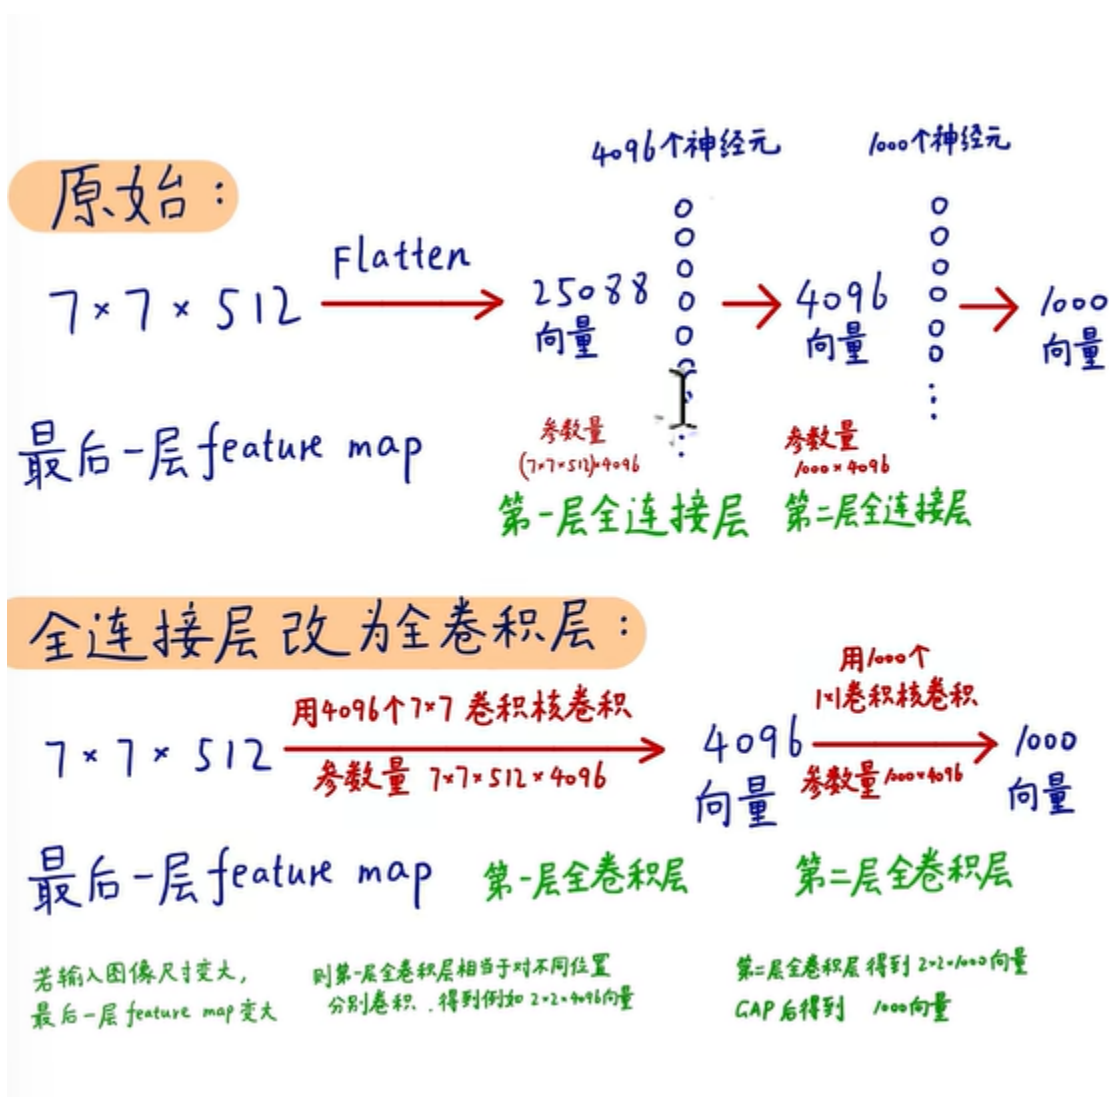 4096个神经元
1000个神经元
原始：
7×7×512
Flatten
25088
向量
4096
向量
1000
向量
最后一层feature map
参数量
(7×7×512)×4096
参数量
1000×4096
第一层全连接层
第二层全连接层
全连接层改为全卷积层：
用4096个7×7卷积核卷积
用1000个
1×1卷积核卷积
7×7×512
参数量 7×7×512×4096
4096
向量
参数量1000×4096
1000
向量
最后一层feature map
第一层全卷积层
第二层全卷积层
若输入图像尺寸变大,
最后一层feature map变大
则第一层全卷积层相当于对不同位置
分别卷积.得到例如2×2×4096向量
第二层全卷积层得到2×2×1000向量
GAP后得到 1000向量